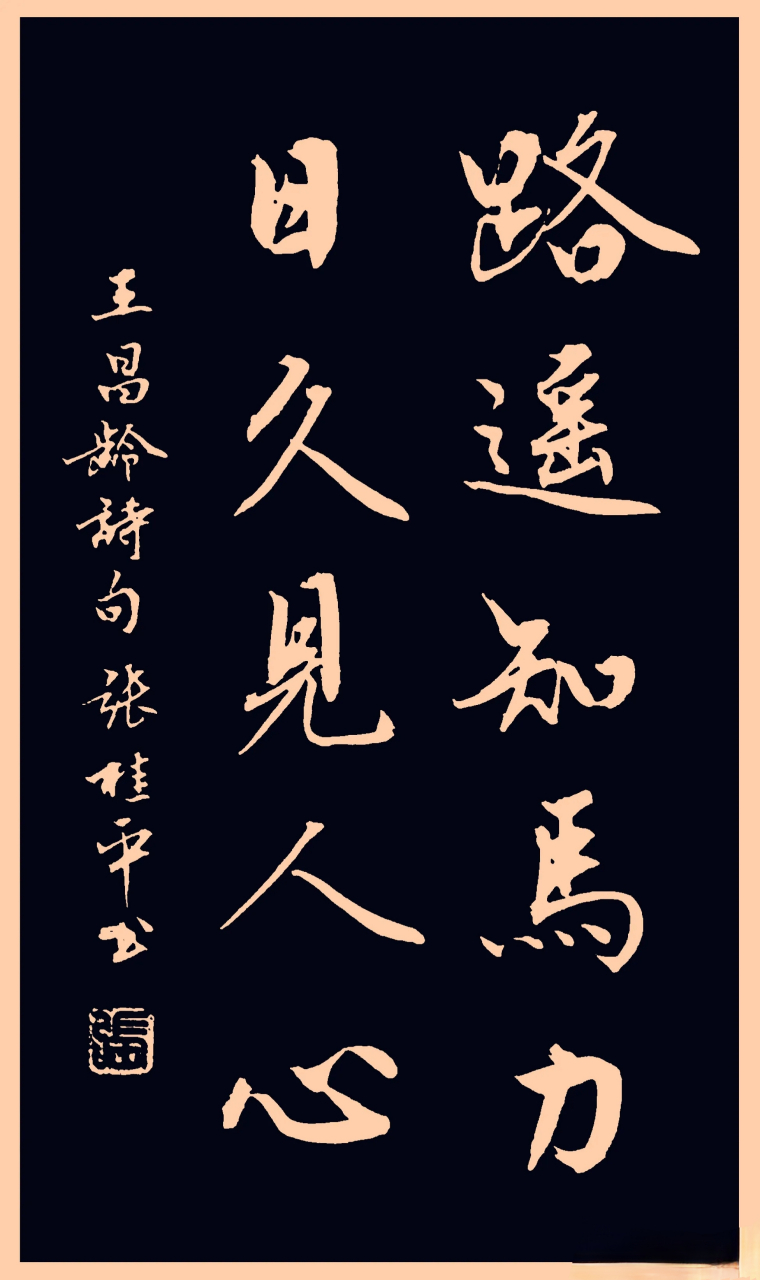 路遥知馬力
日久見人心
王昌齡詩句張桂平书